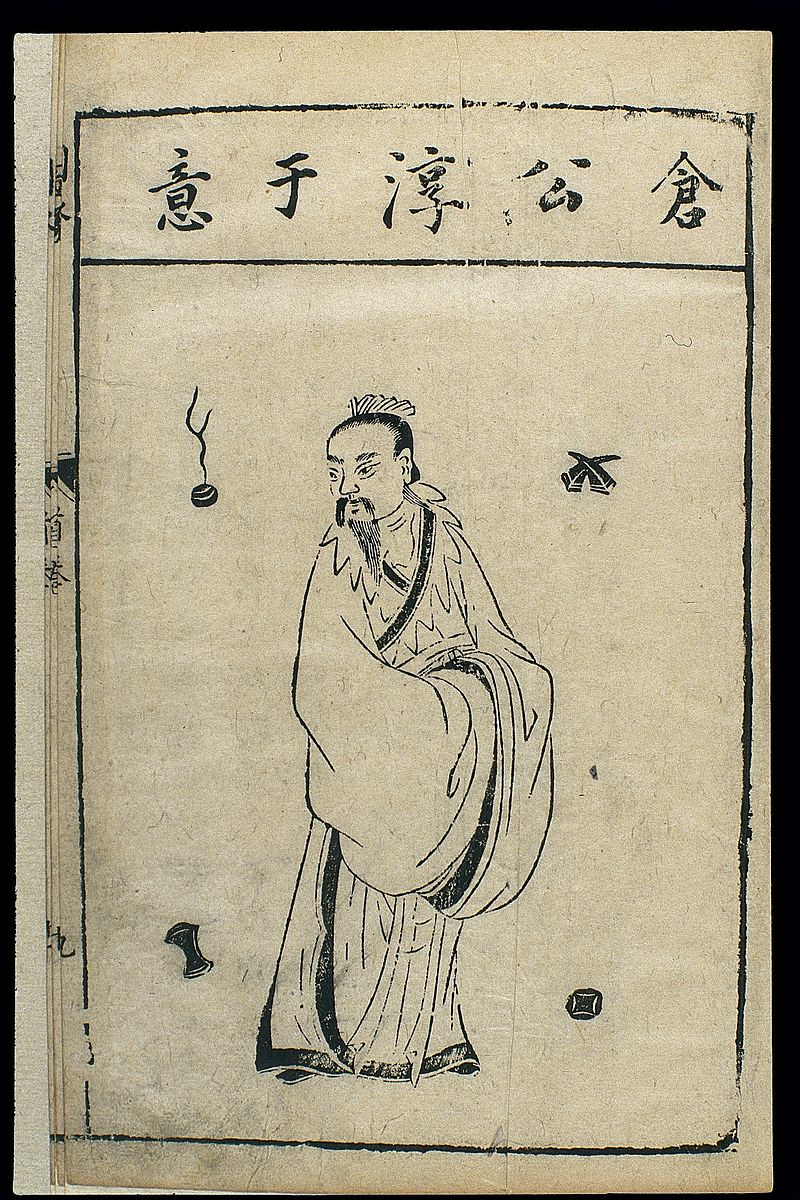 倉公淳于意
首卷
九